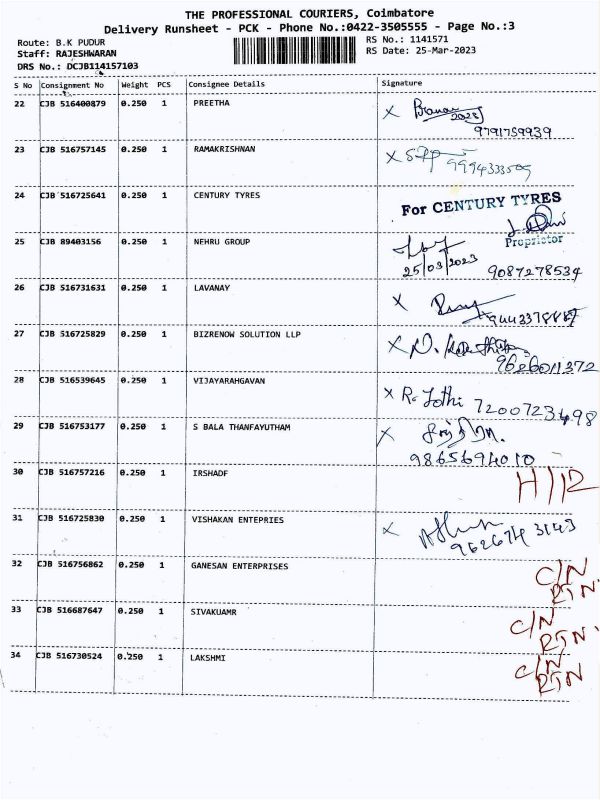 THE PROFESSIONAL COURIERS, Coimbatore
Delivery Runsheet - PCK - Phone No.:0422-3505555 - Page No.:3
Route: B.K PUDUR
RS No.: 1141571
Staff: RAJESHWARAN
RS Date: 25-Mar-2023
DRS No.: DCJB114157103
S No Consignment No Weight PCS Consignee Details Signature
22 CJB 516400879 0.250 1 PREETHA
9791759939
23 CJB 516757145 0.250 1 RAMAKRISHNAN X
24 CJB 516725641 0.250 1 CENTURY TYRES
For CENTURY TYRES
Proprietor
25 CJB 89403156 0.250 1 NEHRU GROUP
25/03/2023 9087278534
26 CJB 516731631 0.250 1 LAVANAY X
27 CJB 516725829 0.250 1 BIZRENOW SOLUTION LLP X
9626011372
28 CJB 516539645 0.250 1 VIJAYARAHGAVAN X R. Jothi 7200723498
29 CJB 516753177 0.250 1 S BALA THANFAYUTHAM X
9865694010
30 CJB 516757216 0.250 1 IRSHADF
31 CJB 516725830 0.250 1 VISHAKAN ENTEPRIES X
9626743143
32 CJB 516756862 0.250 1 GANESAN ENTERPRISES C/N
RTN
33 CJB 516687647 0.250 1 SIVAKUAMR C/N
RTN
34 CJB 516730524 0.250 1 LAKSHMI C/N
RTN